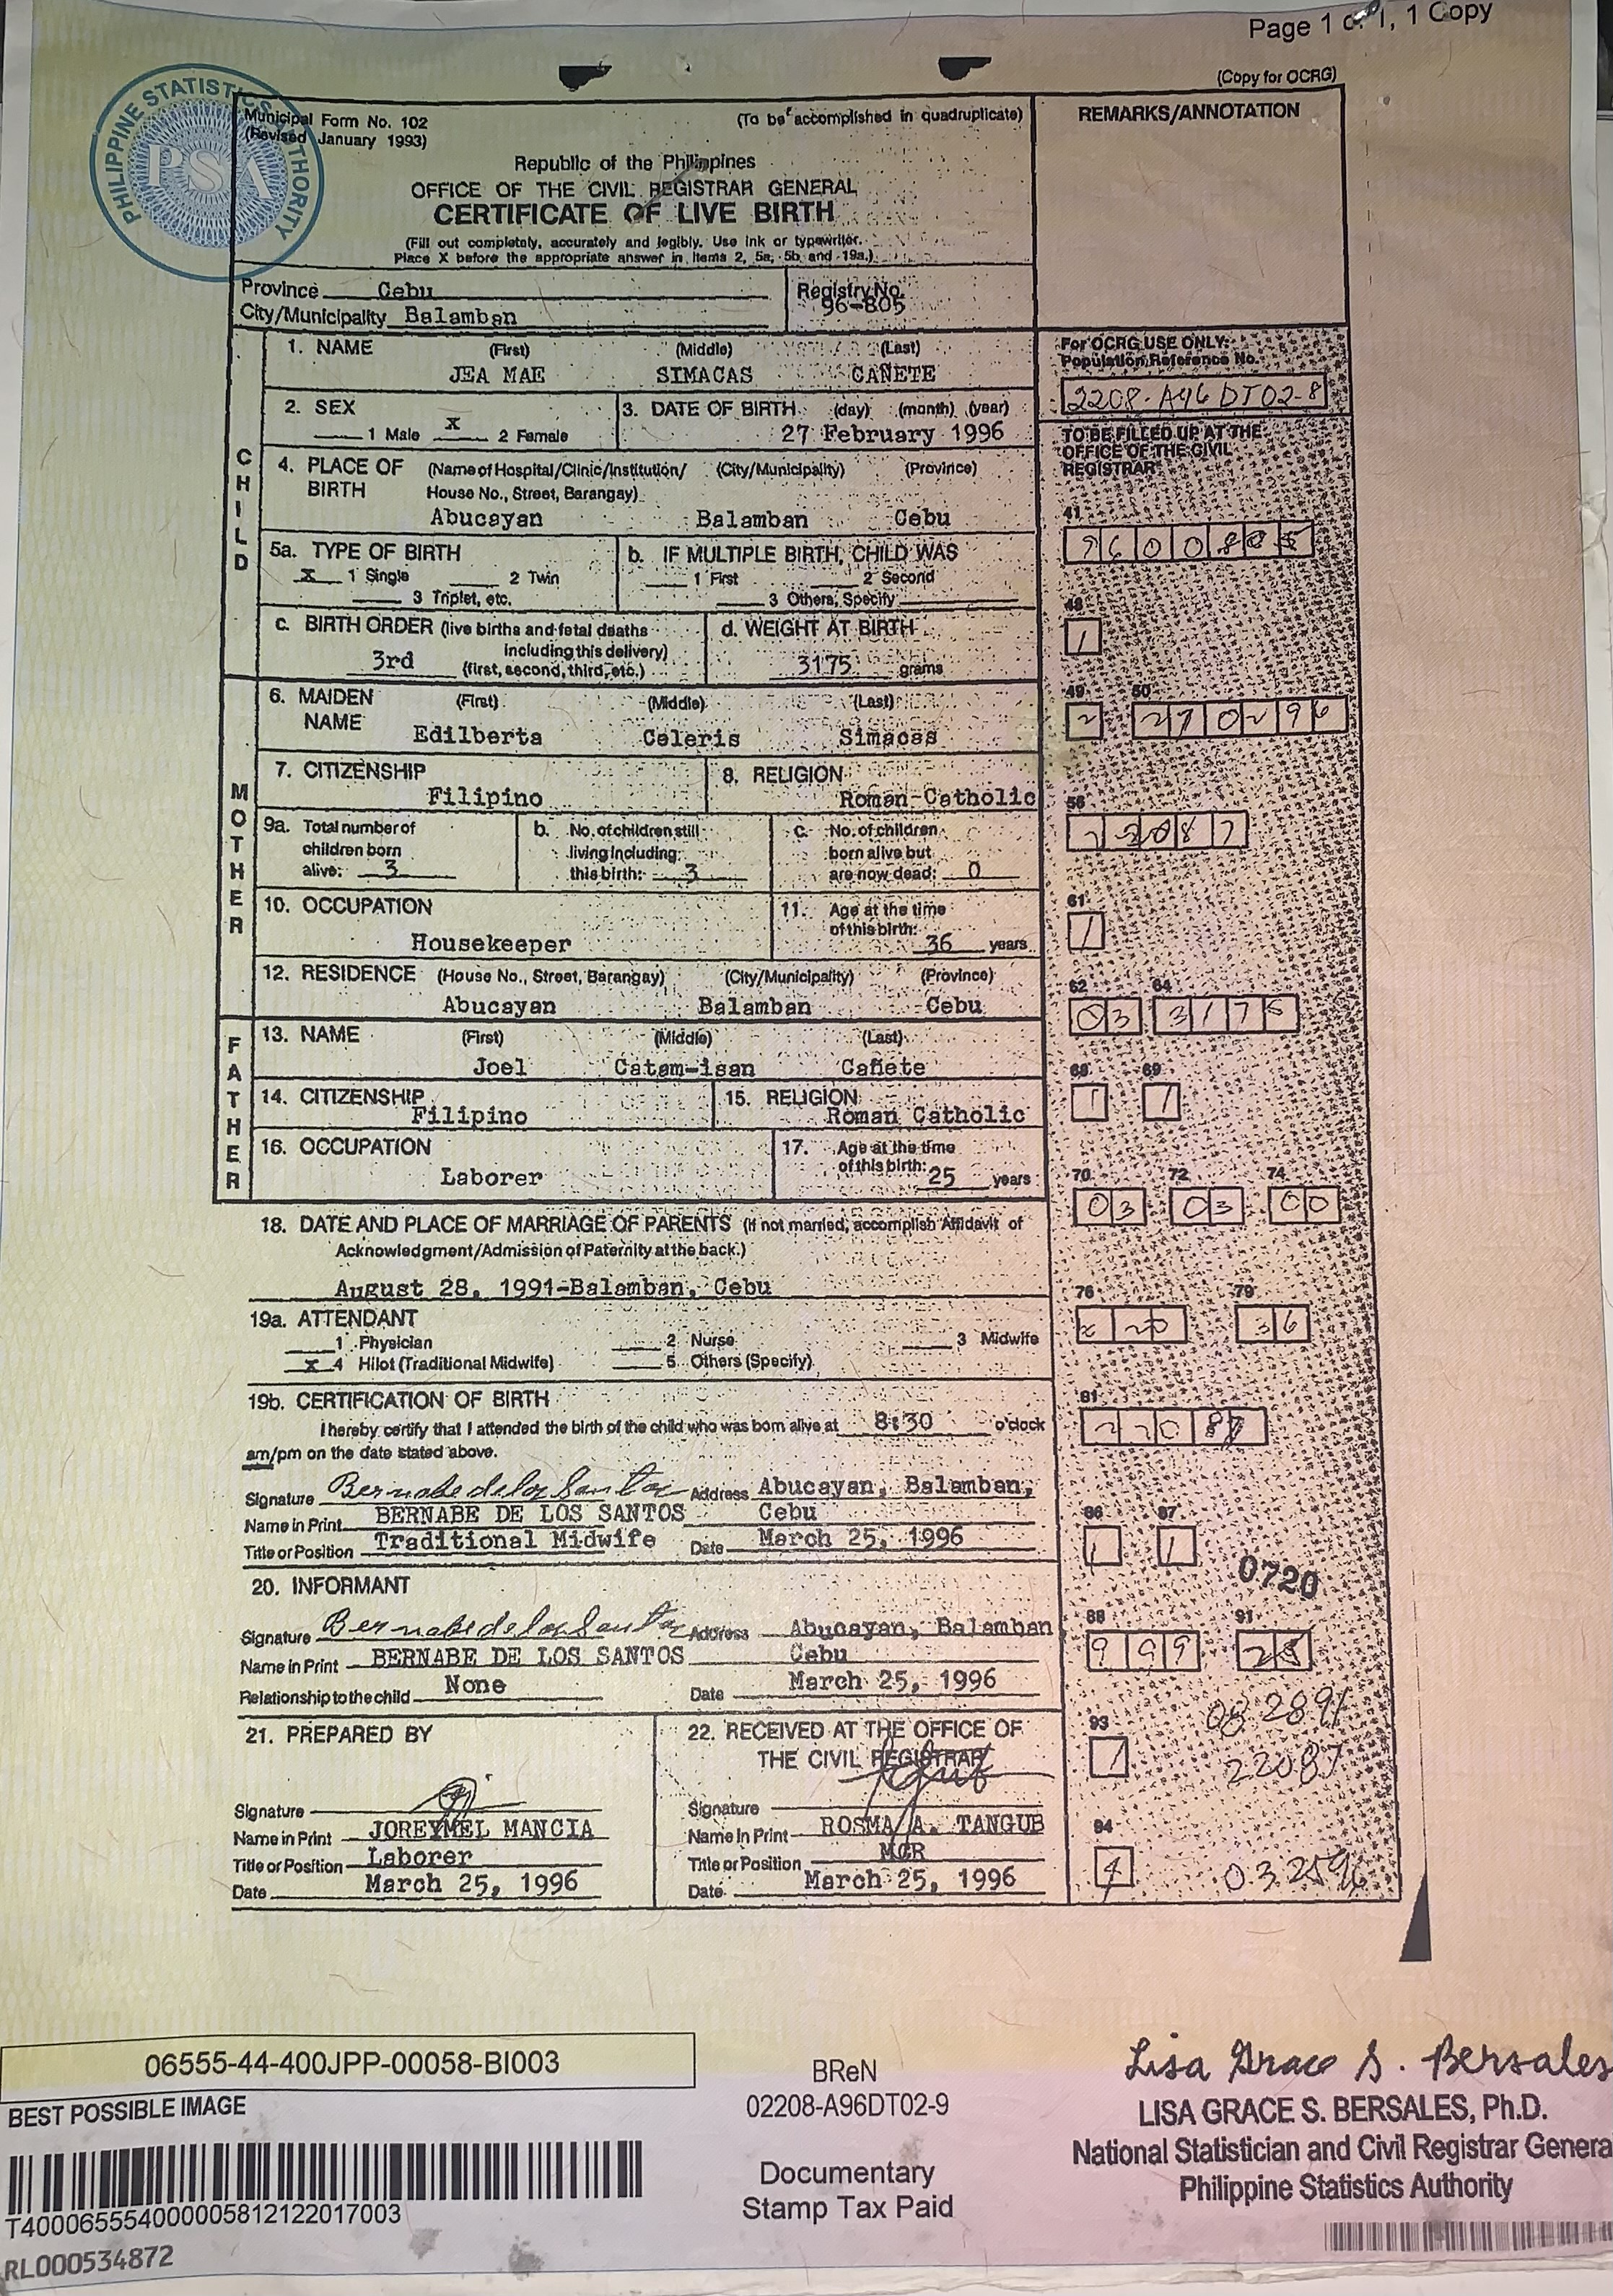 Page 1 of 1, 1 Copy
(Copy for OCRG)
PHILIPPINE STATISTICS AUTHORITY
PSA
Municipal Form No. 102
(Revised January 1993)
(To be accomplished in quadruplicate)
REMARKS/ANNOTATION
Republic of the Philippines
OFFICE OF THE CIVIL REGISTRAR GENERAL
CERTIFICATE OF LIVE BIRTH
(Fill out completely, accurately and legibly. Use ink or typewriter.
Place X before the appropriate answer in items 2, 5a, 5b and 19a.)
Province Cebu
Registry No. 96-805
City/Municipality Balamban
CHILD
1. NAME (First) (Middle) (Last)
JEA MAE SIMACAS CAÑETE
For OCRG USE ONLY:
Population Reference No.
2208-A96DT02-8
2. SEX
1 Male X 2 Female
3. DATE OF BIRTH (day) (month) (year)
27 February 1996
TO BE FILLED UP AT THE
OFFICE OF THE CIVIL
REGISTRAR
4. PLACE OF BIRTH (Name of Hospital/Clinic/Institution/ (City/Municipality) (Province)
House No., Street, Barangay)
Abucayan Balamban Cebu
41
9600805
5a. TYPE OF BIRTH
X 1 Single 2 Twin
3 Triplet, etc.
b. IF MULTIPLE BIRTH, CHILD WAS
1 First 2 Second
3 Others, Specify
48
1
c. BIRTH ORDER (live births and fetal deaths
including this delivery)
3rd (first, second, third, etc.)
d. WEIGHT AT BIRTH
3175 grams
MOTHER
6. MAIDEN NAME (First) (Middle) (Last)
Edilberta Celeris Simacas
49 50
2 270296
7. CITIZENSHIP
Filipino
8. RELIGION
Roman Catholic
56
9a. Total number of
children born
alive: 3
b. No. of children still
living including
this birth: 3
c. No. of children
born alive but
are now dead: 0
10. OCCUPATION
Housekeeper
11. Age at the time
of this birth:
36 years
61
1
12. RESIDENCE (House No., Street, Barangay) (City/Municipality) (Province)
Abucayan Balamban Cebu
62 64
03 3175
FATHER
13. NAME (First) (Middle) (Last)
Joel Catam-isan Cañete
68 69
1 1
14. CITIZENSHIP
Filipino
15. RELIGION
Roman Catholic
16. OCCUPATION
Laborer
17. Age at the time
of this birth: 25 years
70 72 74
03 03 00
18. DATE AND PLACE OF MARRIAGE OF PARENTS (If not married, accomplish Affidavit of
Acknowledgment/Admission of Paternity at the back.)
August 28, 1991-Balamban, Cebu
76 79
36
19a. ATTENDANT
1 Physician 2 Nurse 3 Midwife
X 4 Hilot (Traditional Midwife) 5 Others (Specify)
19b. CERTIFICATION OF BIRTH
I hereby certify that I attended the birth of the child who was born alive at 8:30 o'clock
am/pm on the date stated above.
81
22087
Signature Bernabe delos Santos Address Abucayan, Balamban,
Name in Print BERNABE DE LOS SANTOS Cebu
Title or Position Traditional Midwife Date March 25, 1996
86 87
1 1
0720
20. INFORMANT
Signature Bernabe delos Santos Address Abucayan, Balamban
Name in Print BERNABE DE LOS SANTOS Cebu
Relationship to the child None Date March 25, 1996
88 91
999 25
082891
21. PREPARED BY
Signature
Name in Print JOREYMEL MANCIA
Title or Position Laborer
Date March 25, 1996
22. RECEIVED AT THE OFFICE OF
THE CIVIL REGISTRAR
Signature
Name in Print ROSMA A. TANGUB
Title or Position MCR
Date March 25, 1996
93
1
22087
94
4
032596
06555-44-400JPP-00058-BI003
BEST POSSIBLE IMAGE
T400065554000005812122017003
RL000534872
BReN
02208-A96DT02-9
Documentary
Stamp Tax Paid
Lisa Grace S. Bersales
LISA GRACE S. BERSALES, Ph.D.
National Statistician and Civil Registrar General
Philippine Statistics Authority